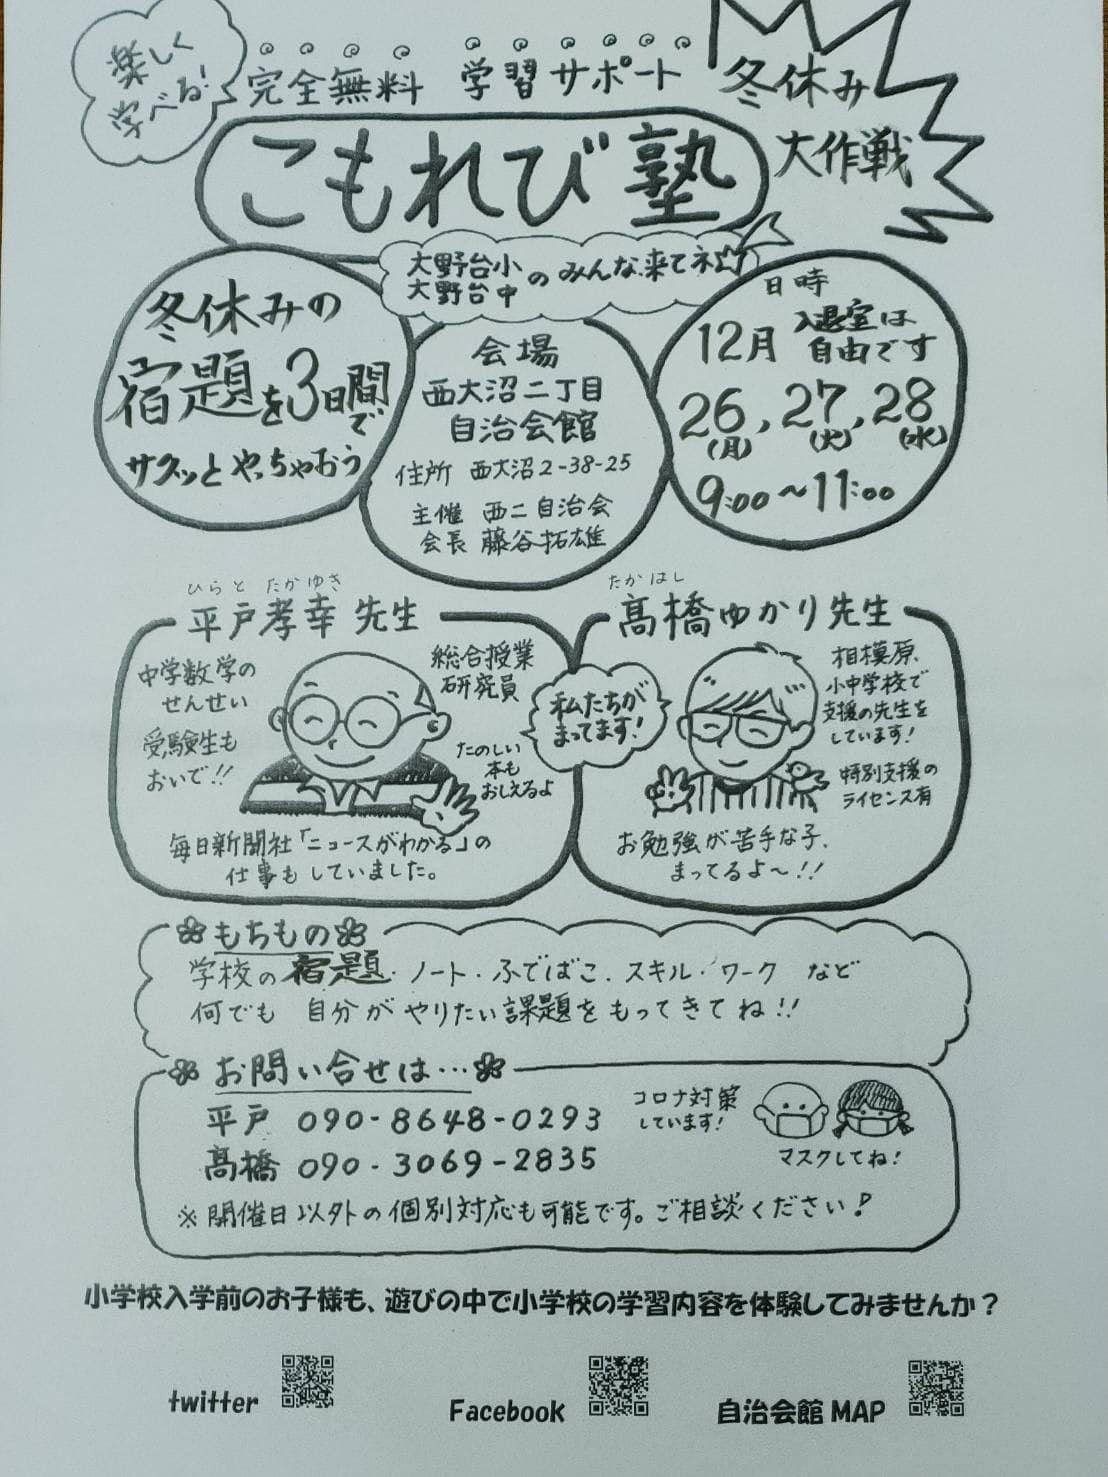 楽しく
学べる!
完全無料 学習サポート
冬休み
大作戦
こもれび塾
大野台小
大野台中
のみんな来てネ
冬休みの
宿題を3日間で
サクッとやっちゃおう
会場
西大沼二丁目
自治会館
住所 西大沼2-38-25
主催 西二自治会
会長 藤谷拓雄
日時
12月 入退室は
自由です
26,27,28
(月) (火) (水)
9:00～11:00
ひらと たかゆき
平戸孝幸先生
中学数学の
せんせい
受験生も
おいで!!
総合授業
研究員
たのしい
本も
おしえるよ
毎日新聞社「ニュースがわかる」の
仕事もしていました。
私たちが
まってます!
たかはし
髙橋ゆかり先生
相模原、
小中学校で
支援の先生を
しています!
特別支援の
ライセンス有
お勉強が苦手な子、
まってるよ～!!
もちもの
学校の宿題・ノート・ふでばこ・スキル・ワーク など
何でも 自分がやりたい課題をもってきてね!!
お問い合せは…
平戸 090-8648-0293
髙橋 090-3069-2835
コロナ対策
しています!
マスクしてね!
※開催日以外の個別対応も可能です。ご相談ください!
小学校入学前のお子様も、遊びの中で小学校の学習内容を体験してみませんか？
twitter
Facebook
自治会館 MAP